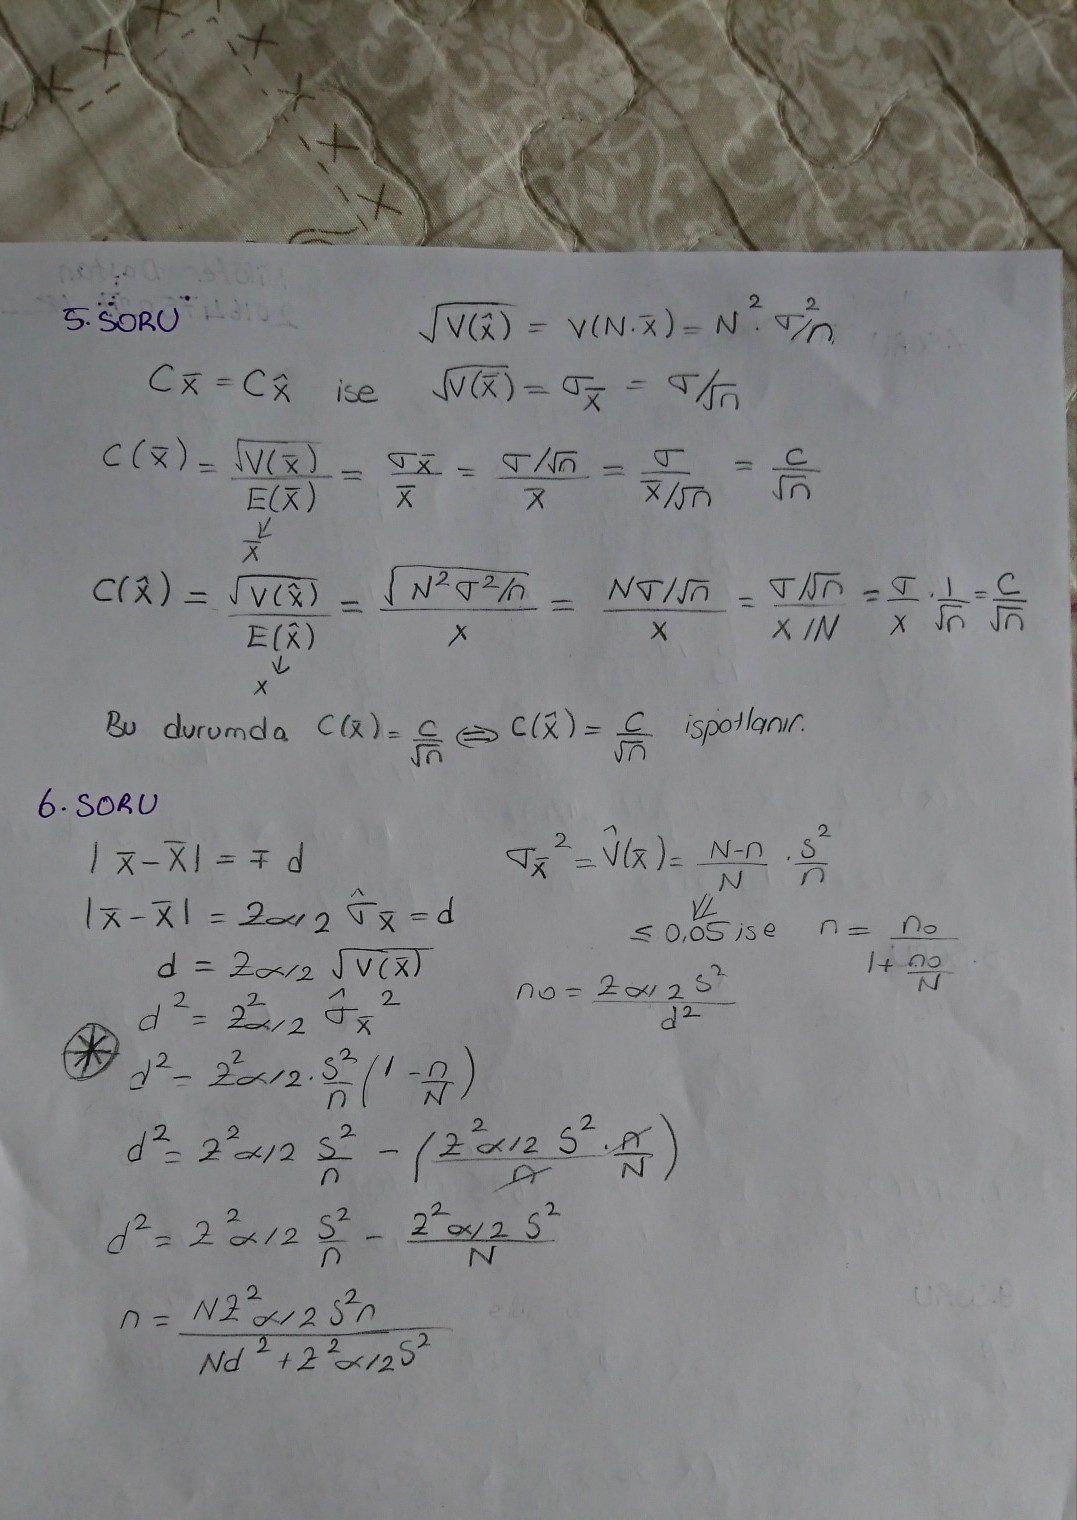 5. SORU
√V(x̂) = V(N.x̄) = N².σ²/n
Cx̄ = Cx̂ ise √V(x̄) = σx̄ = σ/√n
C(x̄) = √V(x̄)/E(x̄) = σx̄/x̄ = σ/√n/x̄ = σ/x̄/√n = C/√n
↓
x̄
C(x̂) = √V(x̂)/E(x̂) = √N²σ²/n/x = Nσ/√n/x = σ/√n/x/N = σ/x . 1/√n = C/√n
↓
x
Bu durumda C(x̄) = C/√n ⇔ C(x̂) = C/√n ispatlanır.
6. SORU
|x̄ - X̄| = ∓ d
|x̄ - X̄| = Zα/2 σ̂x̄ = d
d = Zα/2 √V(x̄)
d² = Z²α/2 σ̂x̄²
d² = Z²α/2 . S²/n (1 - n/N)
d² = Z²α/2 S²/n - (Z²α/2 S²/n . n/N)
d² = Z²α/2 S²/n - Z²α/2 S²/N
n = NZ²α/2 S²n / Nd² + Z²α/2 S²
σx̄² = V̂(x̄) = N-n/N . S²/n
⇓
≤ 0,05 ise n = no / 1 + no/N
no = Zα/2 S² / d²